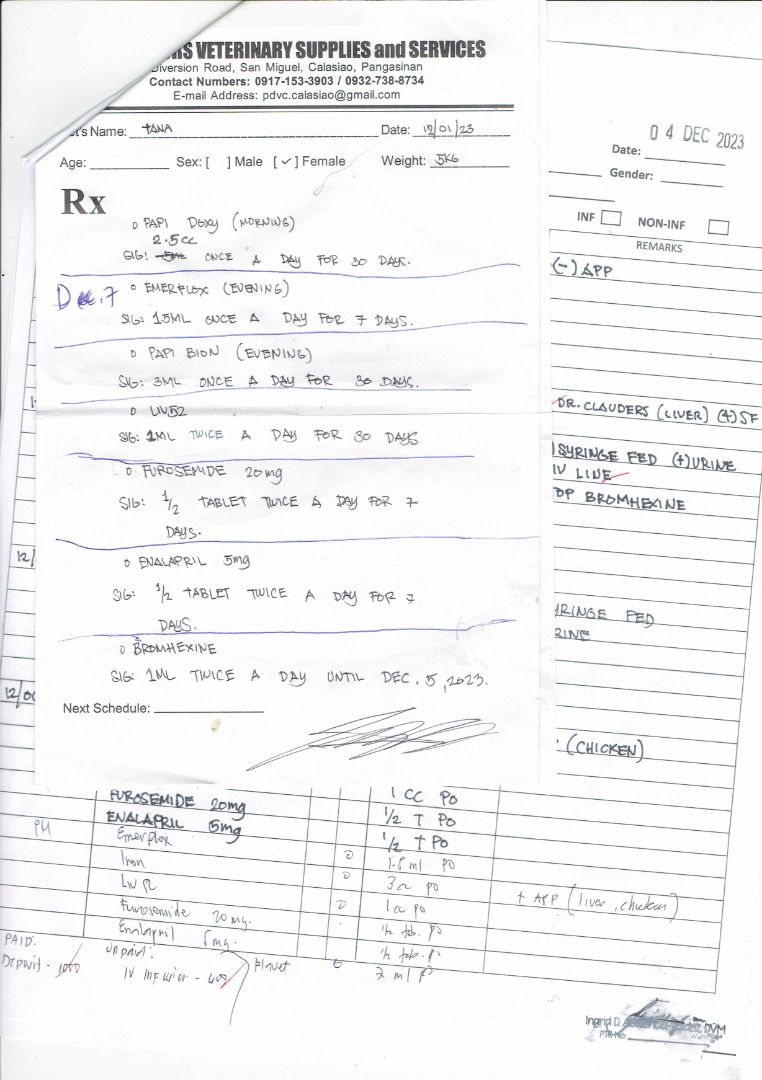 RS VETERINARY SUPPLIES and SERVICES
Diversion Road, San Miguel, Calasiao, Pangasinan
Contact Numbers: 0917-153-3903 / 0932-738-8734
E-mail Address: pdvc.calasiao@gmail.com
Name: TANA Date: 12/01/23
Age: Sex: [ ] Male [✓] Female Weight: 5KG
Rx
PAPI DOXY (MORNING)
2.5cc
SIG: 5ML ONCE A DAY FOR 30 DAYS.
Dec. 7 EMERFLOX (EVENING)
SIG: 1.5ML ONCE A DAY FOR 7 DAYS.
PAPI BION (EVENING)
SIG: 3ML ONCE A DAY FOR 30 DAYS.
LIV52
SIG: 1ML TWICE A DAY FOR 30 DAYS
FUROSEMIDE 20mg
SIG: 1/2 TABLET TWICE A DAY FOR 7
DAYS.
ENALAPRIL 5mg
SIG: 1/2 TABLET TWICE A DAY FOR 7
DAYS.
BROMHEXINE
SIG: 1ML TWICE A DAY UNTIL DEC. 5, 2023.
Next Schedule:
04 DEC 2023
Date:
Gender:
INF NON-INF
REMARKS
(-) APP
DR. CLAUDERS (LIVER) (+) SF
SYRINGE FED (+) URINE
IV LINE
BROMHEXINE
12/
RINGE FED
RINE
12/0
(CHICKEN)
FUROSEMIDE 20mg 1 CC PO
ENALAPRIL 5mg 1/2 T PO
PM Emerflox 1/2 T PO
Iron 1.5 ml po
3cc po
Furosemide 20 mg. 1cc po + APP (liver, chicken)
Enalapril 5mg. 1/2 tab. po
PAID: Unpaid: 1/2 tab. po
Deposit - 1000 IV Infusion - 600 2 ml po
Ingrid D. DVM